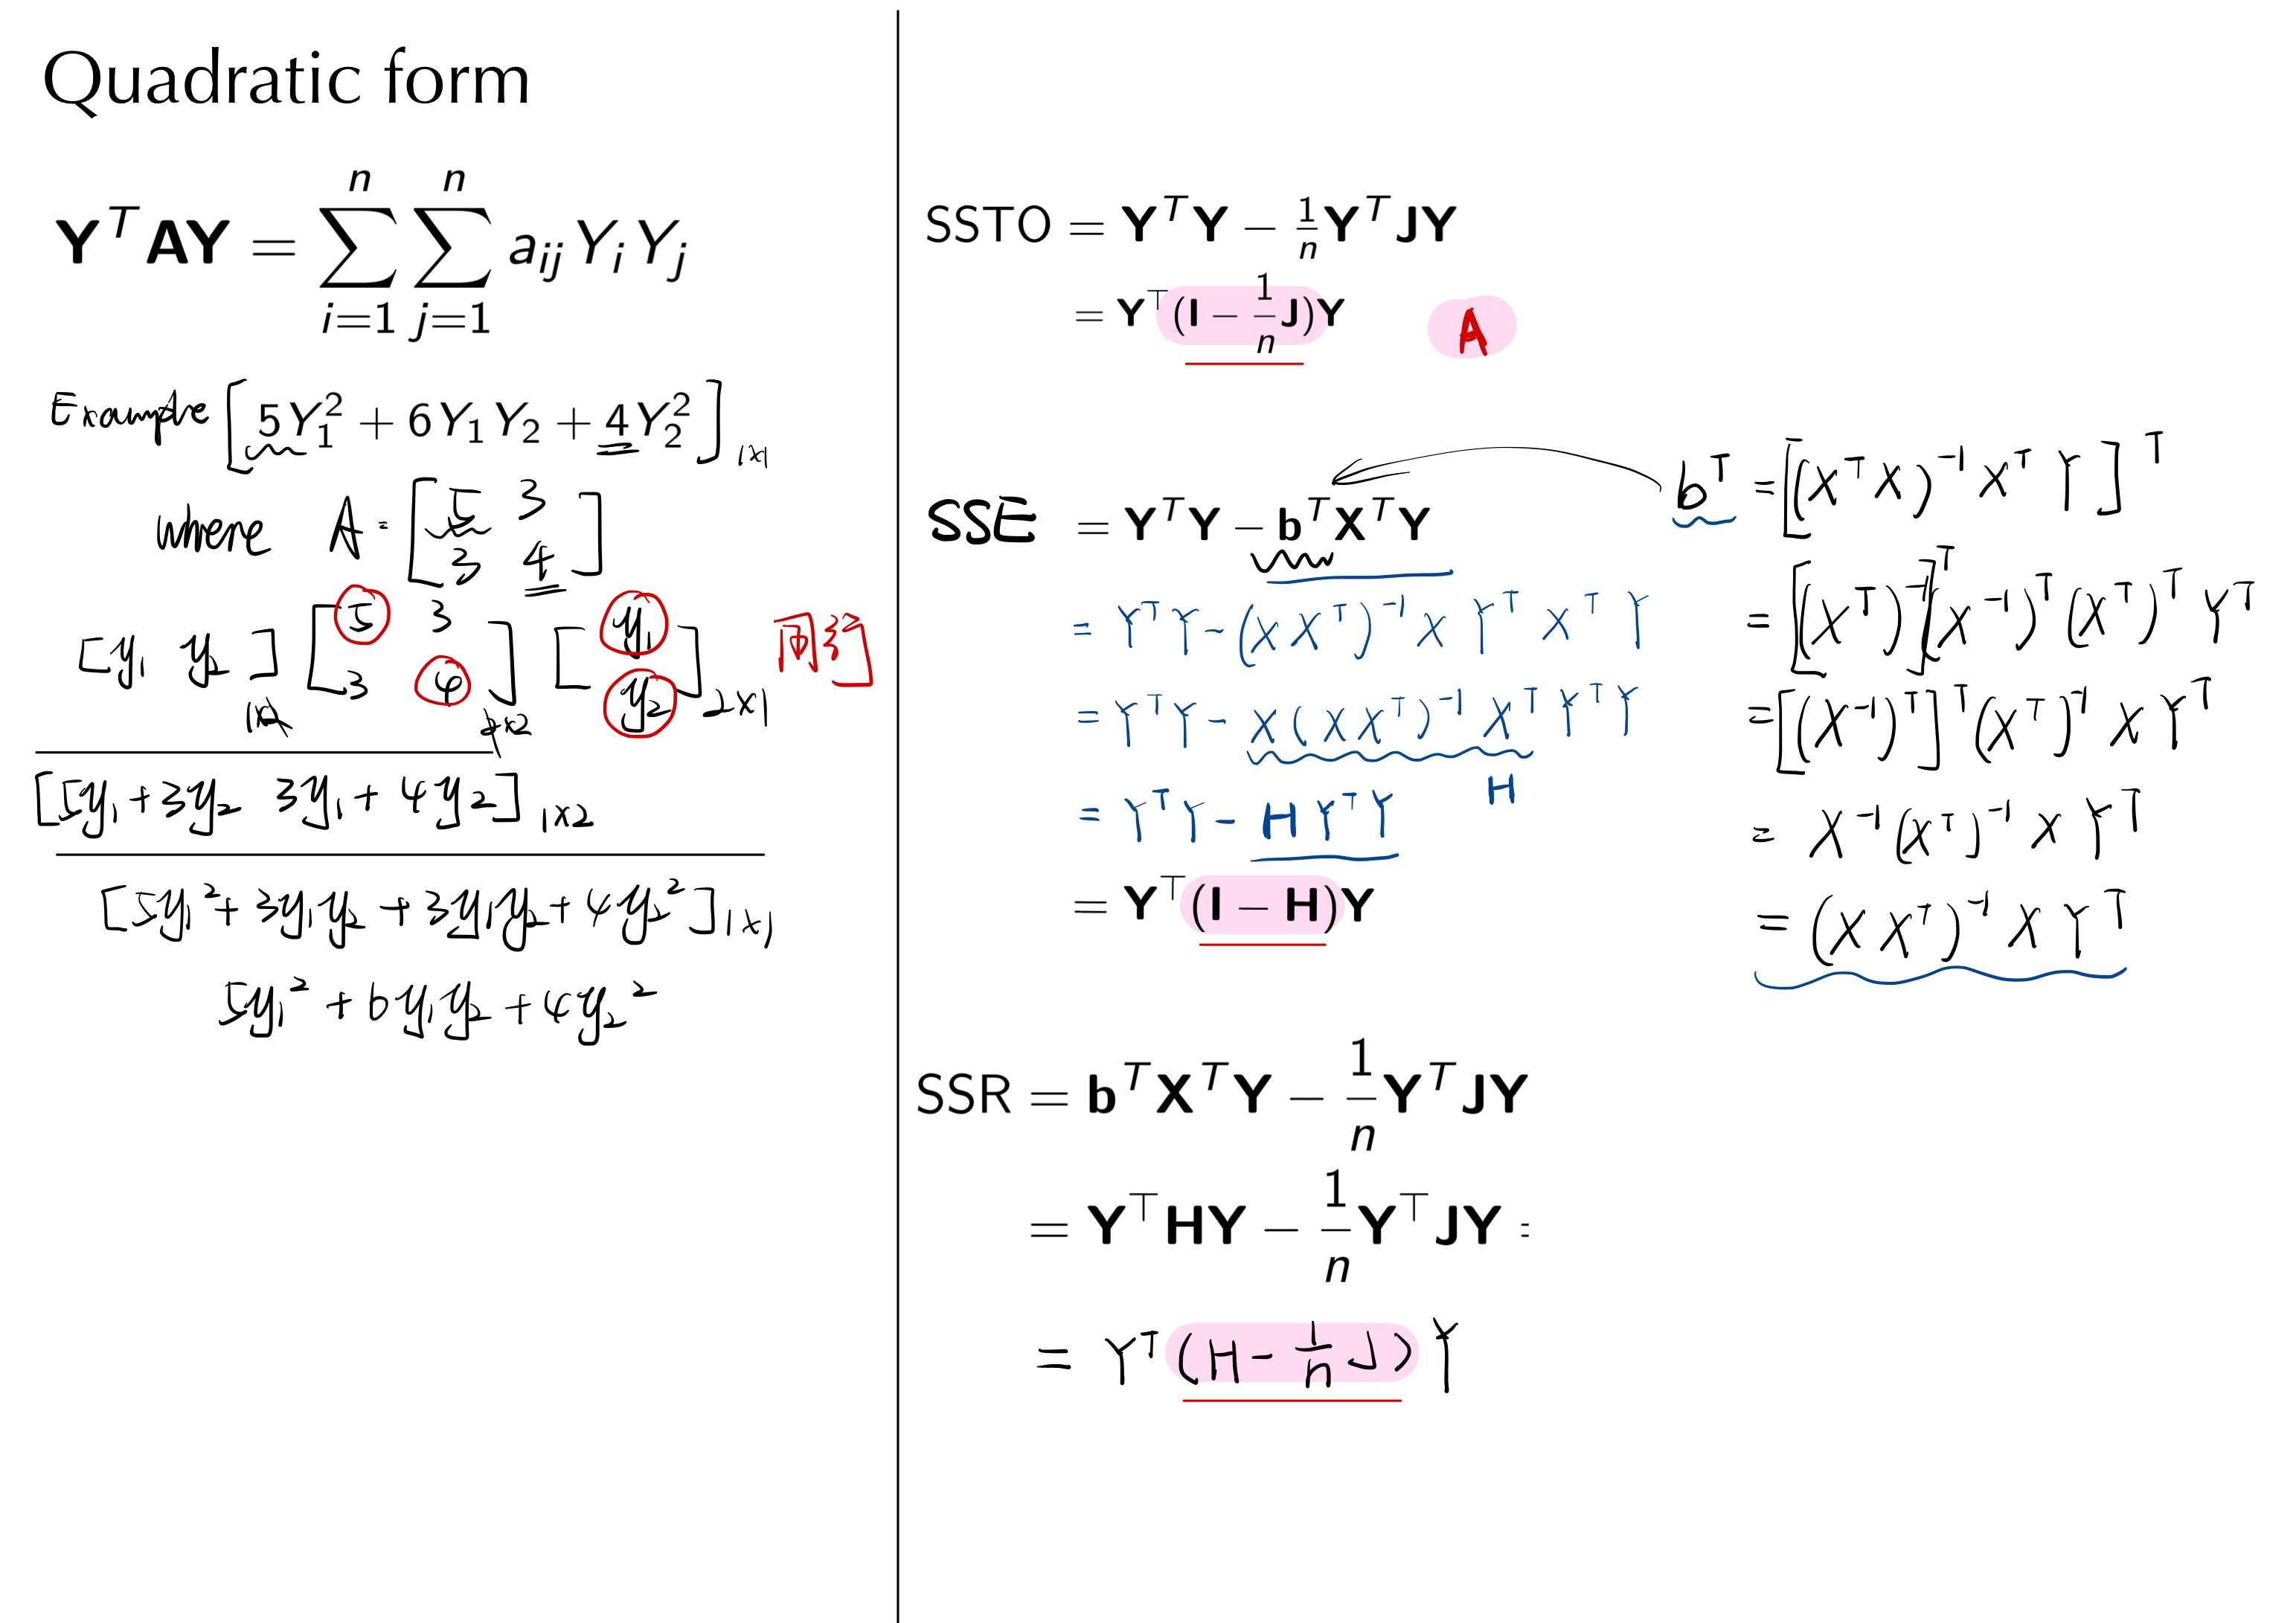 Quadratic form
Y^T AY = ∑_{i=1}^{n} ∑_{j=1}^{n} a_{ij} Y_i Y_j
Example [ 5Y_1^2 + 6Y_1Y_2 + 4Y_2^2 ]_{1×1}
where A = [ 5 3
3 4 ]
[ y_1 y_2 ]_{1×2} [ 5 3
3 4 ]_{2×2} [ y_1
y_2 ]_{2×1}
[5y_1+3y_2 3y_1+4y_2]_{1×2}
[5y_1^2+3y_1y_2+3y_1y_2+4y_2^2]_{1×1}
5y_1^2+6y_1y_2+4y_2^2
SSTO = Y^T Y − 1/n Y^T JY
= Y^⊤(I − 1/n J)Y
A
SSE = Y^T Y − b^T X^T Y
= Y^T Y − (XX^T)^{-1} X Y^T X^T Y
= Y^T Y − X(XX^T)^{-1} X^T Y^T Y
H
= Y^T Y − H Y^T Y
= Y^⊤(I − H)Y
b^T = [(X^T X)^{-1} X^T Y]^T
= [(X^T)^{-1}]^T (X^{-1})^T (X^T)^T Y^T
= [(X^{-1})^T]^T (X^T)^{-1} X Y^T
= X^{-1} (X^T)^{-1} X Y^T
= (X X^T)^{-1} X Y^T
SSR = b^T X^T Y − 1/n Y^T JY
= Y^⊤HY − 1/n Y^⊤JY =
= Y^T (H − 1/n J) Y